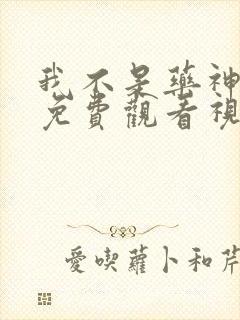 我不是药神
免費觀看視
愛喫蘿卜和芹